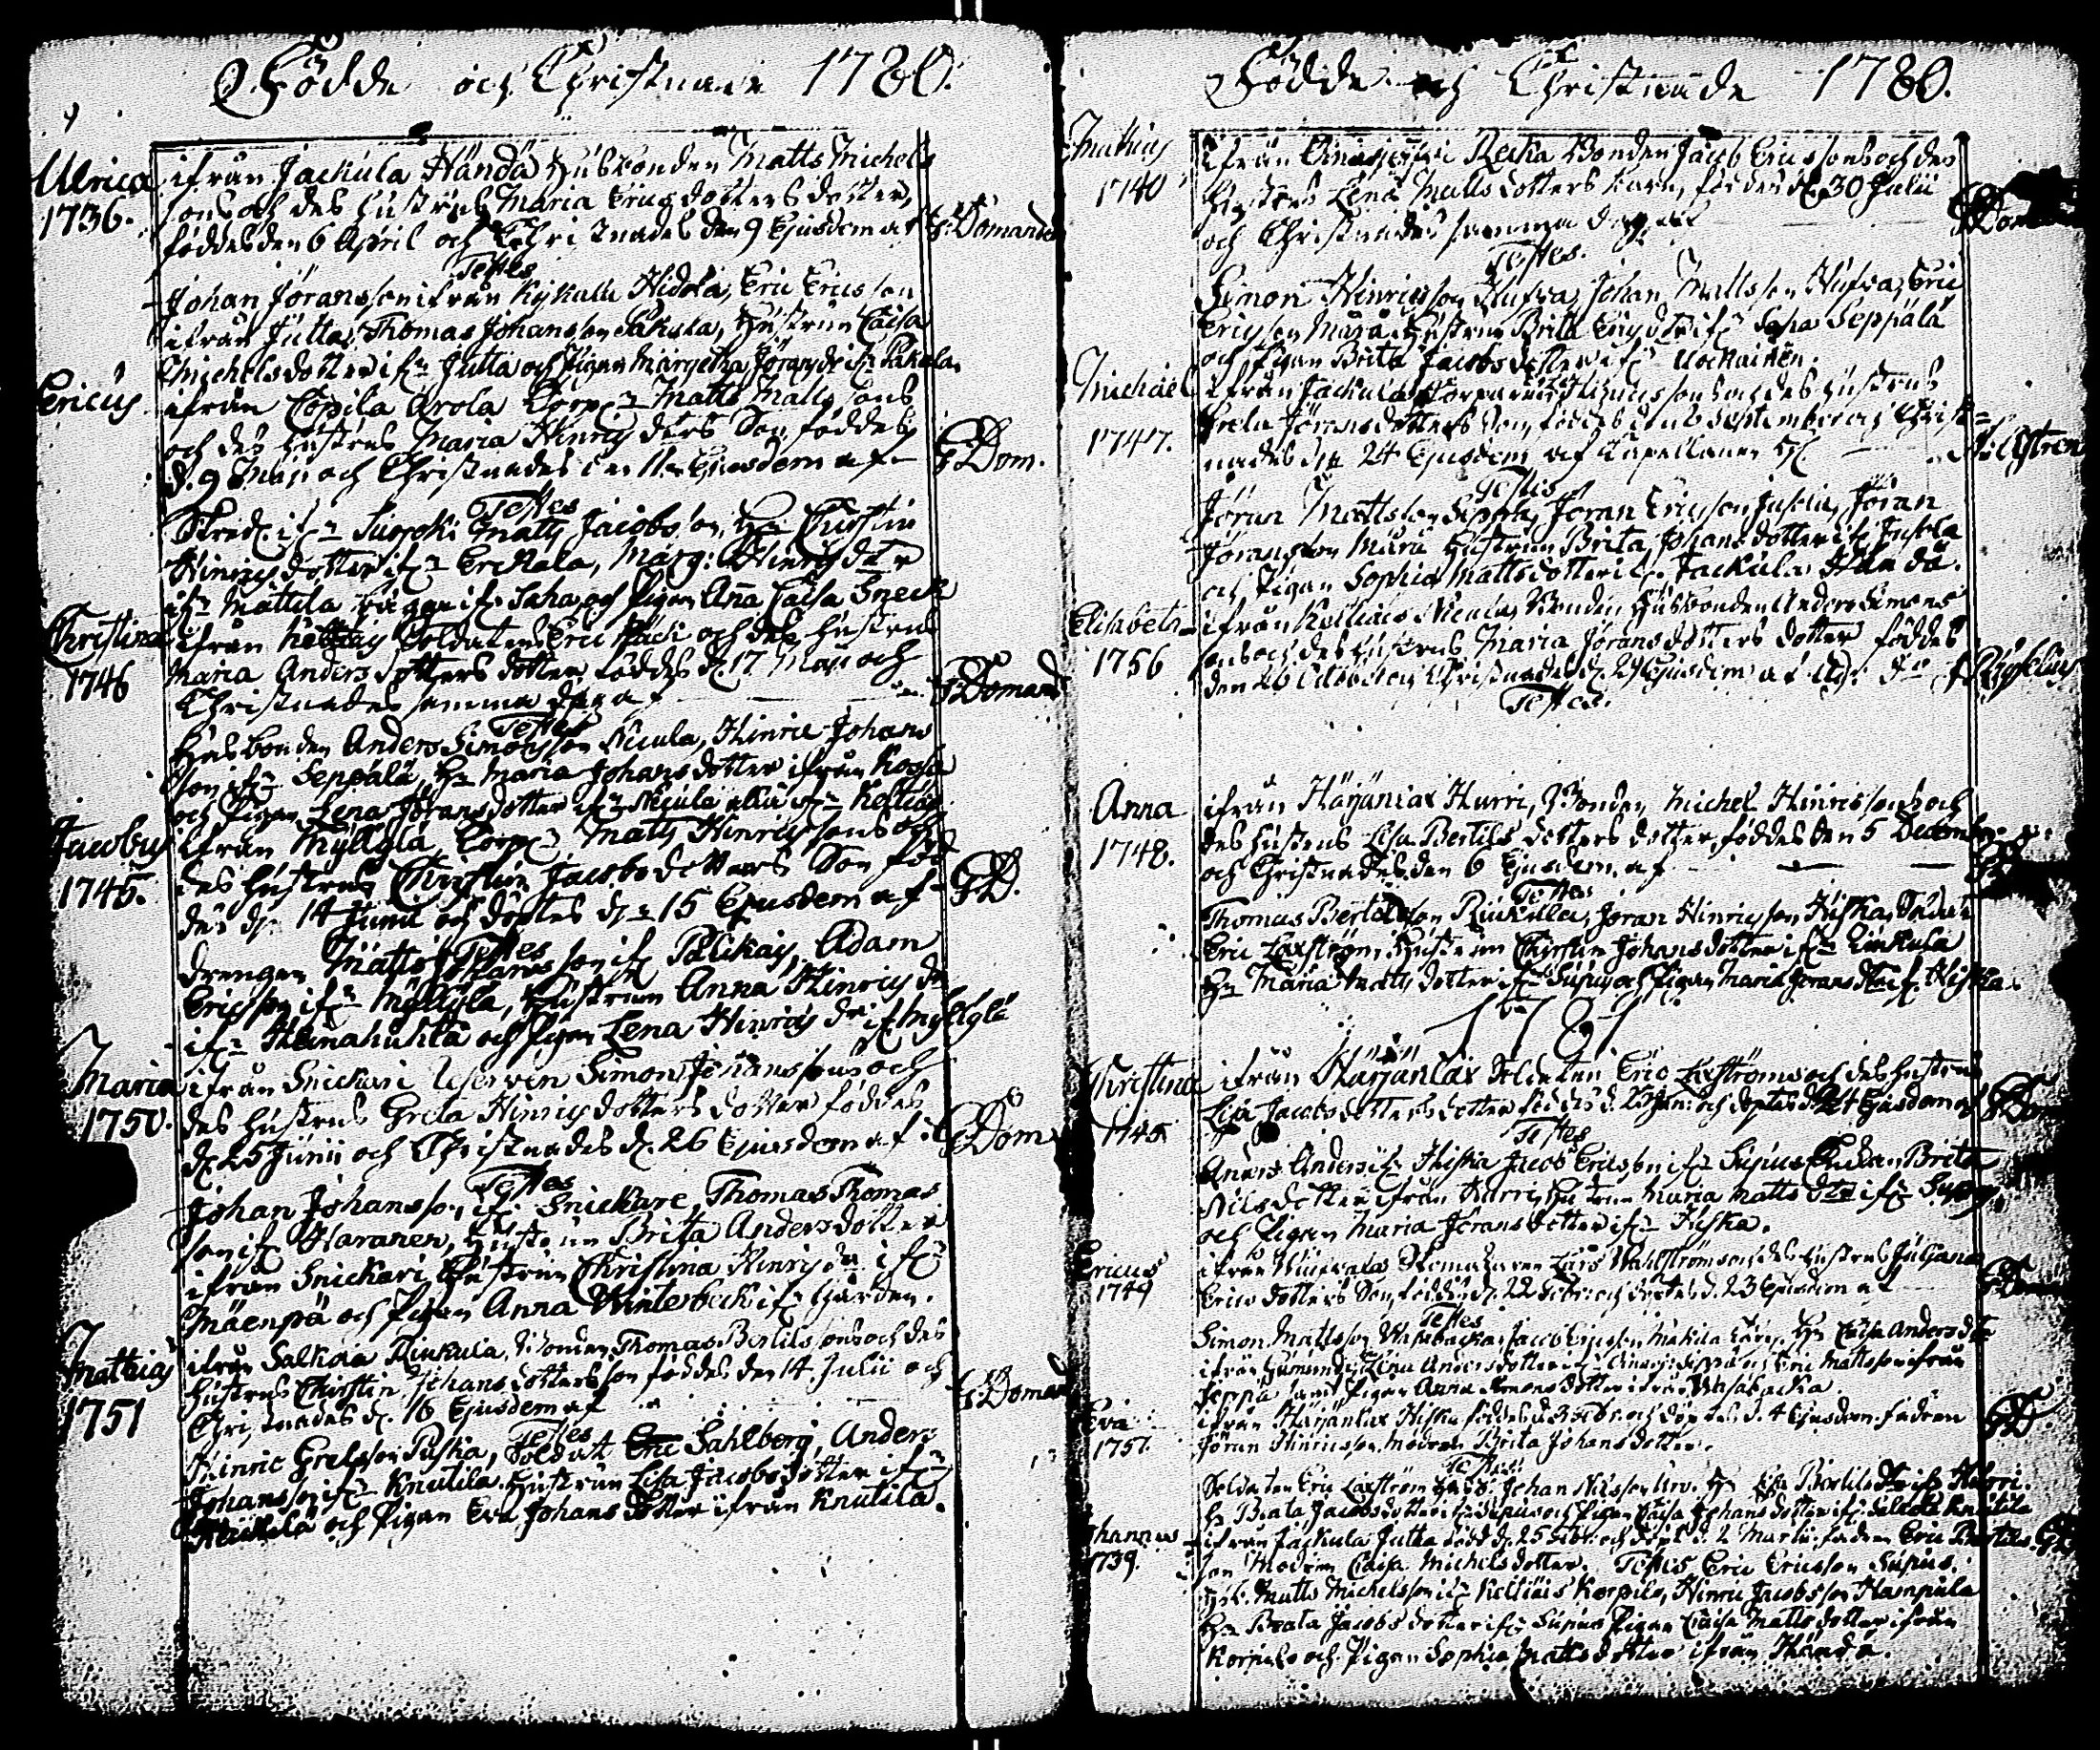 Födde och Christnade 1780.
Ulrica
1736.
ifrån Jackula Händä Husbonden Matts Michels
sons och des hustrus Maria Ericsdotters dotter,
föddes den 6 April och Christnades den 9 Ejusdem af G: Domander
Testes
Johan Jöransson ifrån Kykalu Hidola, Eric Ericsson
ifrån Jutta, Thomas Johansson Pakula, Hustrun Caisa
Michelsdotter ifn Jutta och Pigan Margetha Jöransdr ifn Pakula
Ericus
ifrån Copila Arola Torpn Matts Matts sons
och des hustrus Maria Hinrics dters Son, föddes
d. 9 Maji och Christnades den 11 Ejusdem af G Dom.
Testes
ifn Suppoki Matts Jacobsson, Hn Christin
Hinricsdotter ifn Erckola, Marg: Hinrics dtr
ifn Mattila ifn Saha och Pigan Anna Caisa Sneck
Christina
1746
ifrån Soldaten Eric och des hustrus
Maria Anders dotters dotter föddes d. 17 Maji och
Christnades samma dag af G Domand
Testes
Husbonden Anders Simonsson Nicula, Hinric Johans
son ifn Seppälä, Hn Maria Johansdotter ifrån Kossa
och Pigan Lena Jöransdotter ifn Nicula ifn Kelliäis
Jacobus
1745.
ifrån Myllylä, Torpn Matts Hinrics sons och
des hustrus Christin Jacobs dotters Son föd
des dn 14 Junii och döptes dn 15 Ejusdem af GD.
Testes
Drengen Matts Johans son ifn Palikais, Adam
Ericsson ifn Myllylä, Hustrun Anna Hinrics dr
ifn Heinahuhta och Pigan Lena Hinrics dr ifn Myllylä
Maria
1750.
ifrån Snickari Simon Johanssons och
des hustrus Greta Hinricsdotters dotter föddes
d. 25 Junii och Christnades d. 26 Ejusdem af G Dom
Testes
Johan Johansson ifn Snickare, Thomas Thomas
son ifn Haranen, Hustrun Brita Andersdotter
ifrån Snickari, Hustrun Christina Hinrics dr ifn
Mäenpä och Pigan Anna Winterbeck ifn Gården.
Mathias
1751
ifrån Salkola Riukula, Bonden Thomas Bertilssons och des
hustrus Christin Johansdotters son föddes den 14 Julii och
Christnades d. 16 Ejusdem af G: Domand
Testes
Hinric Grelsson Puska, Soldat Eric Sahlberg, Anders
Johansson ifn Knutila, Hustrun Lisa Jacobsdotter ifn
och Pigan Eva Johans dotter ifrån Knutila.
Födde och Christnade 1780.
Mathias
1740
ifrån Recka Bonden Jacob Ericssons och des
hustrus Lena Matts dotters barn, föddes d. 30 Julii
och Christnades samma dag af G Dom
Testes.
Simon Hinricsson Hufva, Johan Mattsson Hufva, Eric
Ericsson Mura, Hustrun Brita Erics dtr ifn Saha Seppälä
och Pigan Brita Jacobsdotter ifn Uockainen.
Michäel
1747.
ifrån Jackula Torparen Hinricssons och des hustrus
Greta Jöransdotters Son, föddes d. September och Christ-
nades dn 24 Ejusdem af Capellanen H
Testes
Jöran Mattsson Seppä, Jöran Ericsson Jusola, Jöran
Jöransson Mura Hustrun Brita Johansdotter ifn Jusola
och Pigan Sophia Mattsdotter ifn Jackula Händä.
Elisabeth
1756
ifrån Kelliäis Nicula, Bonden Husbonden Anders Simons
sons och des hustrus Maria Jöransdotters dotter föddes
den 26 October och Christnades d. 29 Ejusdem af
Testes.
Anna
1748.
ifrån Harjanlax Hurri, Bonden Michel Hinricssons och
des hustrus Lisa Bertils dotters dotter, föddes den 5 December
och Christnades den 6 Ejusdem af GD
Testes
Thomas Bertelsson Riukula, Jöran Hinricsson Hiska, Soldat
Eric Laxström, Hustrun Christin Johansdotter ifn Riukula
Hn Maria Matts dotter ifn Supius och Pigan Maria Jöransdtr ifn Hiska
1781
Christina
1745
ifrån Harjanlax Soldaten Eric Laxströms och des hustrus
Lisa Jacobsdotters dotter föddes d. 23 Jan: och döptes d. 24 Ejusdem af G Dom
Testes
Anders Anders ifn Hiska Jacob Ericsson ifn Supius Brita
Nilsdotter ifrån Hurri, Hustrun Maria Matts dtr ifn Supius
och Pigan Maria Jöransdotter ifn Hiska.
Ericus
1749
ifrån Skomakaren Lars Wahlströms och des hustrus Juliana
Erics dotters Son, föddes d. 22 Febr: och döptes d. 23 Ejusdem af G Dom
Testes
Simon Mattsson Wahabacka, Jacob Ericsson Mäkila Hn Caisa Anders dtr
ifrån Lena Andersdotter ifn och Eric Mattsson ifrån
Seppä samt Pigan Anna Simonsdotter ifrån Wahabacka.
Eva
1757.
ifrån Harjanlax Hiska föddes d. 3 Febr: och döptes d. 4 Ejusdem. fadren GD
Jöran Hinricsson Modren Brita Johansdotter.
Testes:
Soldaten Eric Laxström Johan Nilsson Hn Lisa Bertilsdtr ifn Hurri.
Hn Beata Jacobsdotter ifn Supius och Pigan Caisa Johansdotter ifn Salkola Knutila
Johannes
1739.
ifrån Jackula Jutta född d. 25 Febr: och döpt d. 2 Martii. fadren Eric Bertils GD
son Modren Caisa Michelsdotter. Testes Eric Ericsson Supius.
Matts Michelsson ifn Kelliäis Korpilo, Hinric Jacobsson Hampula
Hn Beata Jacobsdotter ifn Supius Pigan Caisa Mattsdotter ifrån
Korpilo och Pigan Sophia Mattsdotter ifrån Händä.